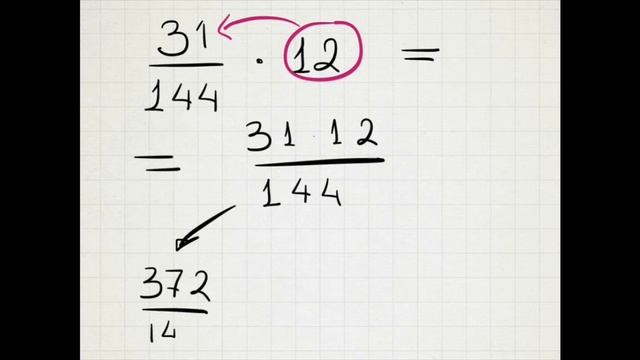 31
144 · 12 =
= 31 12
144
372
14